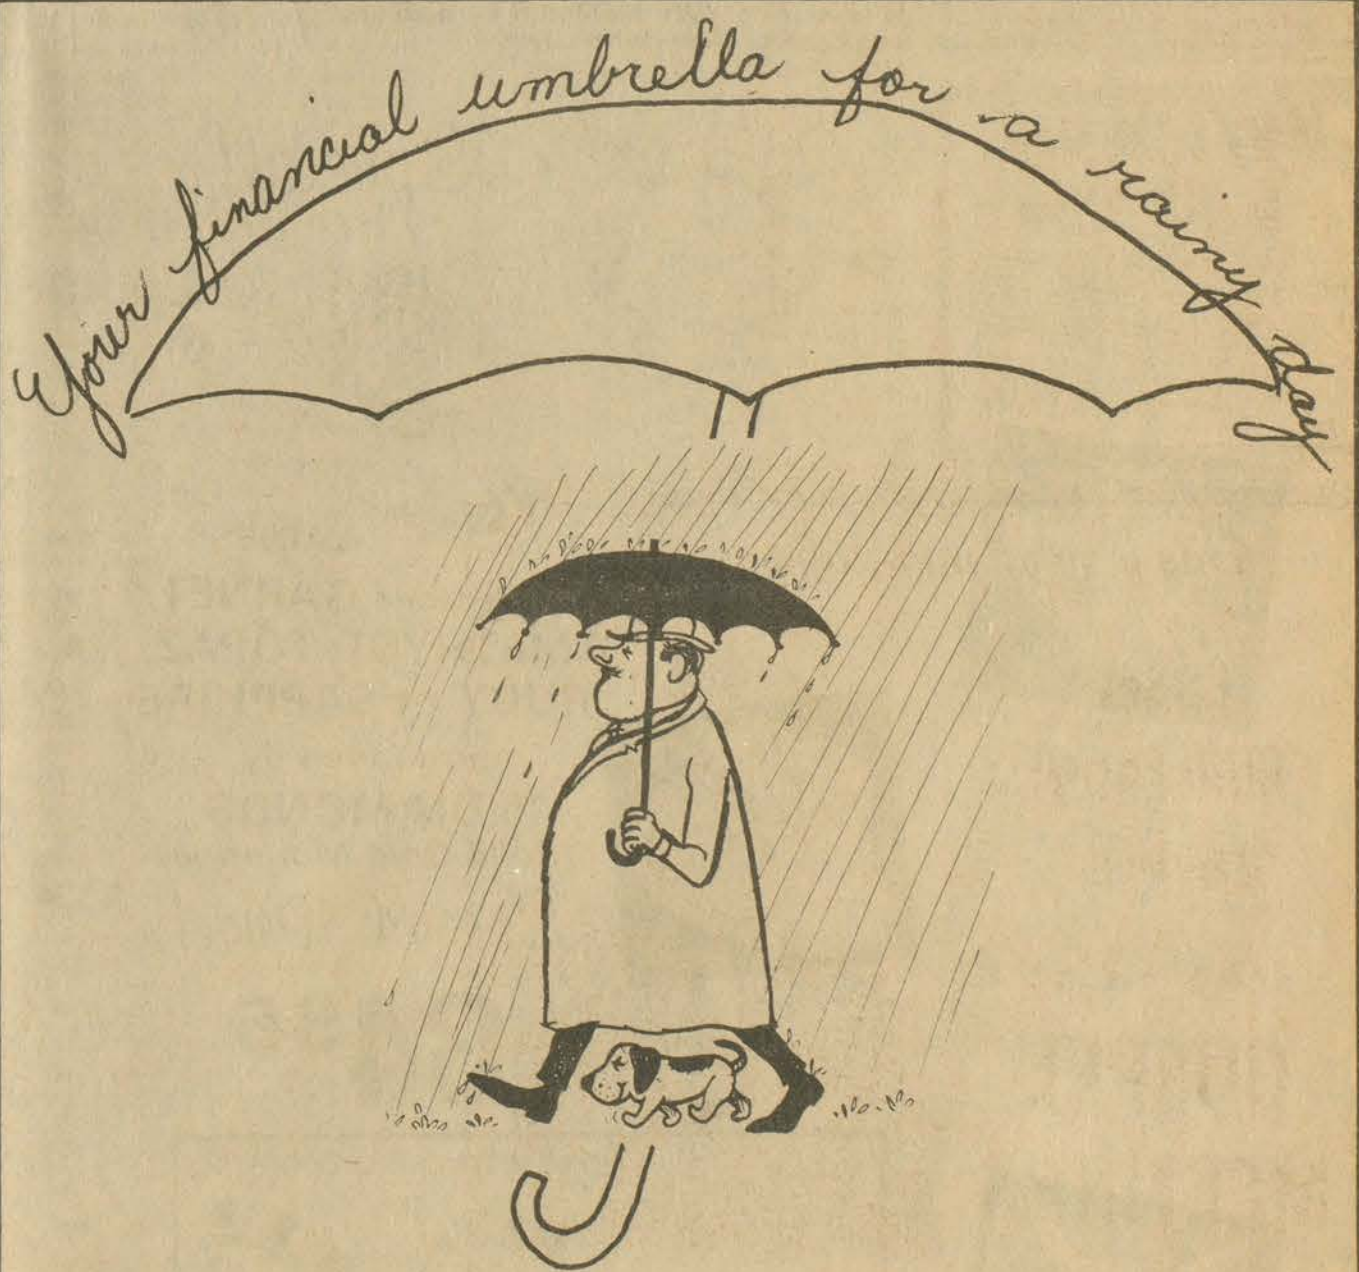 Your financial umbrella for a rainy day